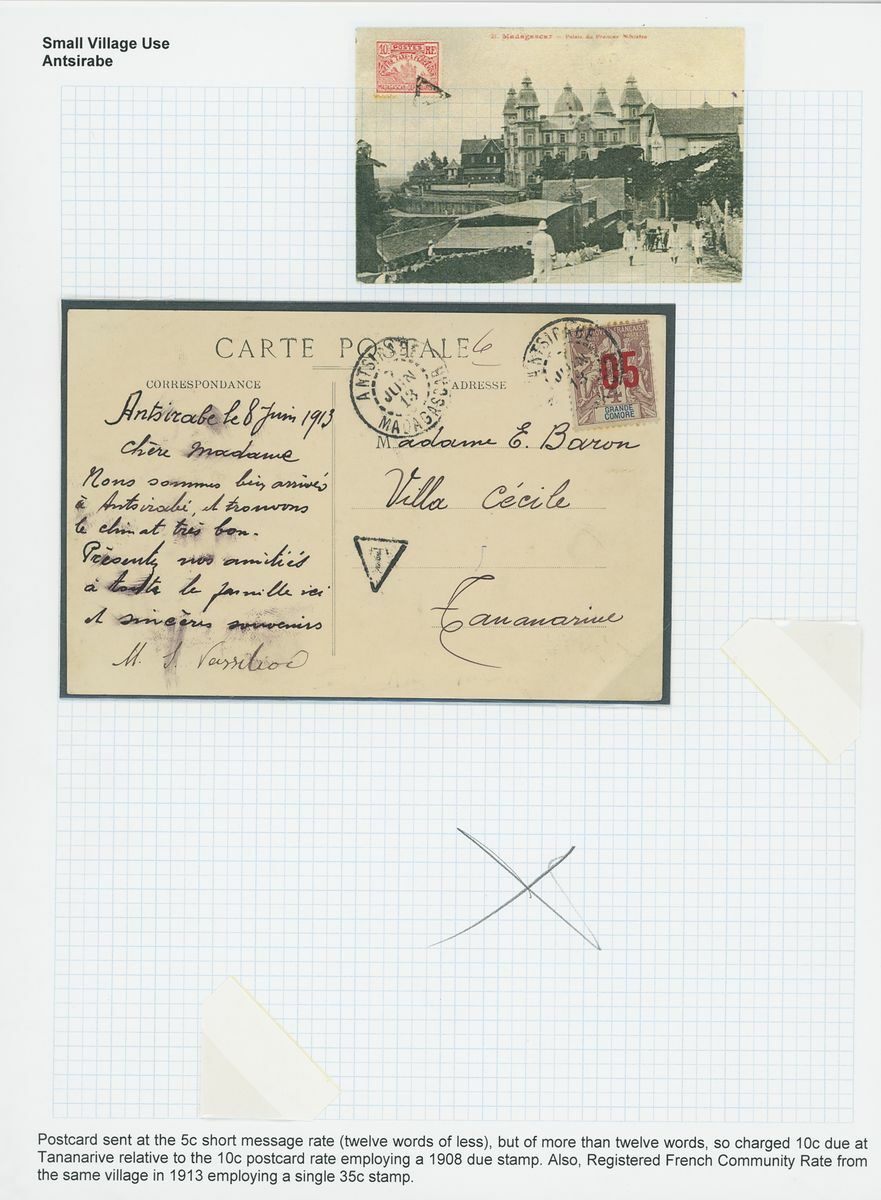 Small Village Use
Antsirabe
21. Madagascar — Palais du Premier Ministre
10 POSTES RF
CARTE POSTALE
6
CORRESPONDANCE
ADRESSE
ANTSIRABE
JUIN
13
MADAGASCAR
ANTSIRABE
13
05
GRANDE
COMORE
Antsirabe le 8 Juin 1913
Chère Madame
Nous sommes bien arrivés
à Antsirabé, et trouvons
le climat très bon.
Présentez nos amitiés
à toute la famille ici
et sincères souvenirs
M. S.
Madame E. Baron
Villa Cécile
Tananarive
T
Postcard sent at the 5c short message rate (twelve words of less), but of more than twelve words, so charged 10c due at
Tananarive relative to the 10c postcard rate employing a 1908 due stamp. Also, Registered French Community Rate from
the same village in 1913 employing a single 35c stamp.